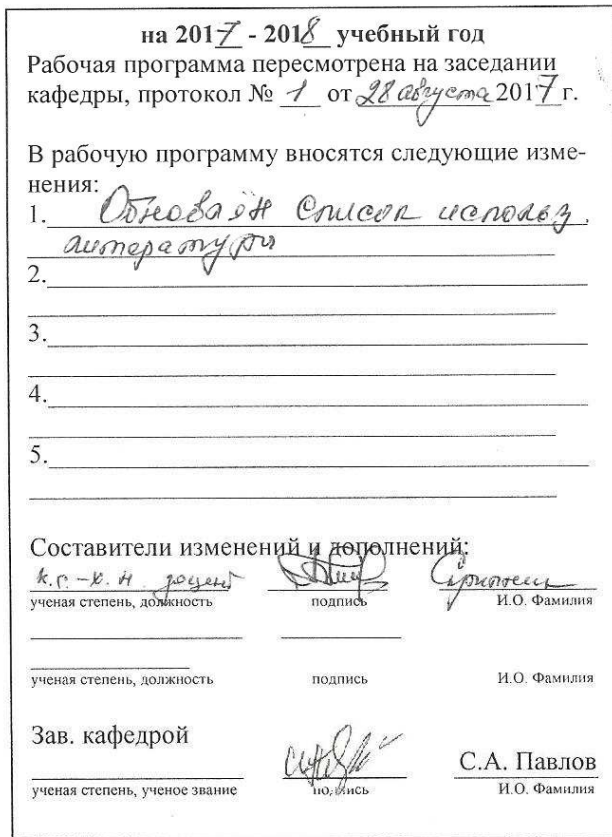 на 2017 - 2018 учебный год
Рабочая программа пересмотрена на заседании
кафедры, протокол № 1 от 28 августа 2017 г.
В рабочую программу вносятся следующие изме-
нения:
1. Обновлён список использ.
литературы
2.
3.
4.
5.
Составители изменений и дополнений:
к.с.-х.н. доцент
ученая степень, должность подпись И.О. Фамилия
ученая степень, должность подпись И.О. Фамилия
Зав. кафедрой
С.А. Павлов
ученая степень, ученое звание подпись И.О. Фамилия